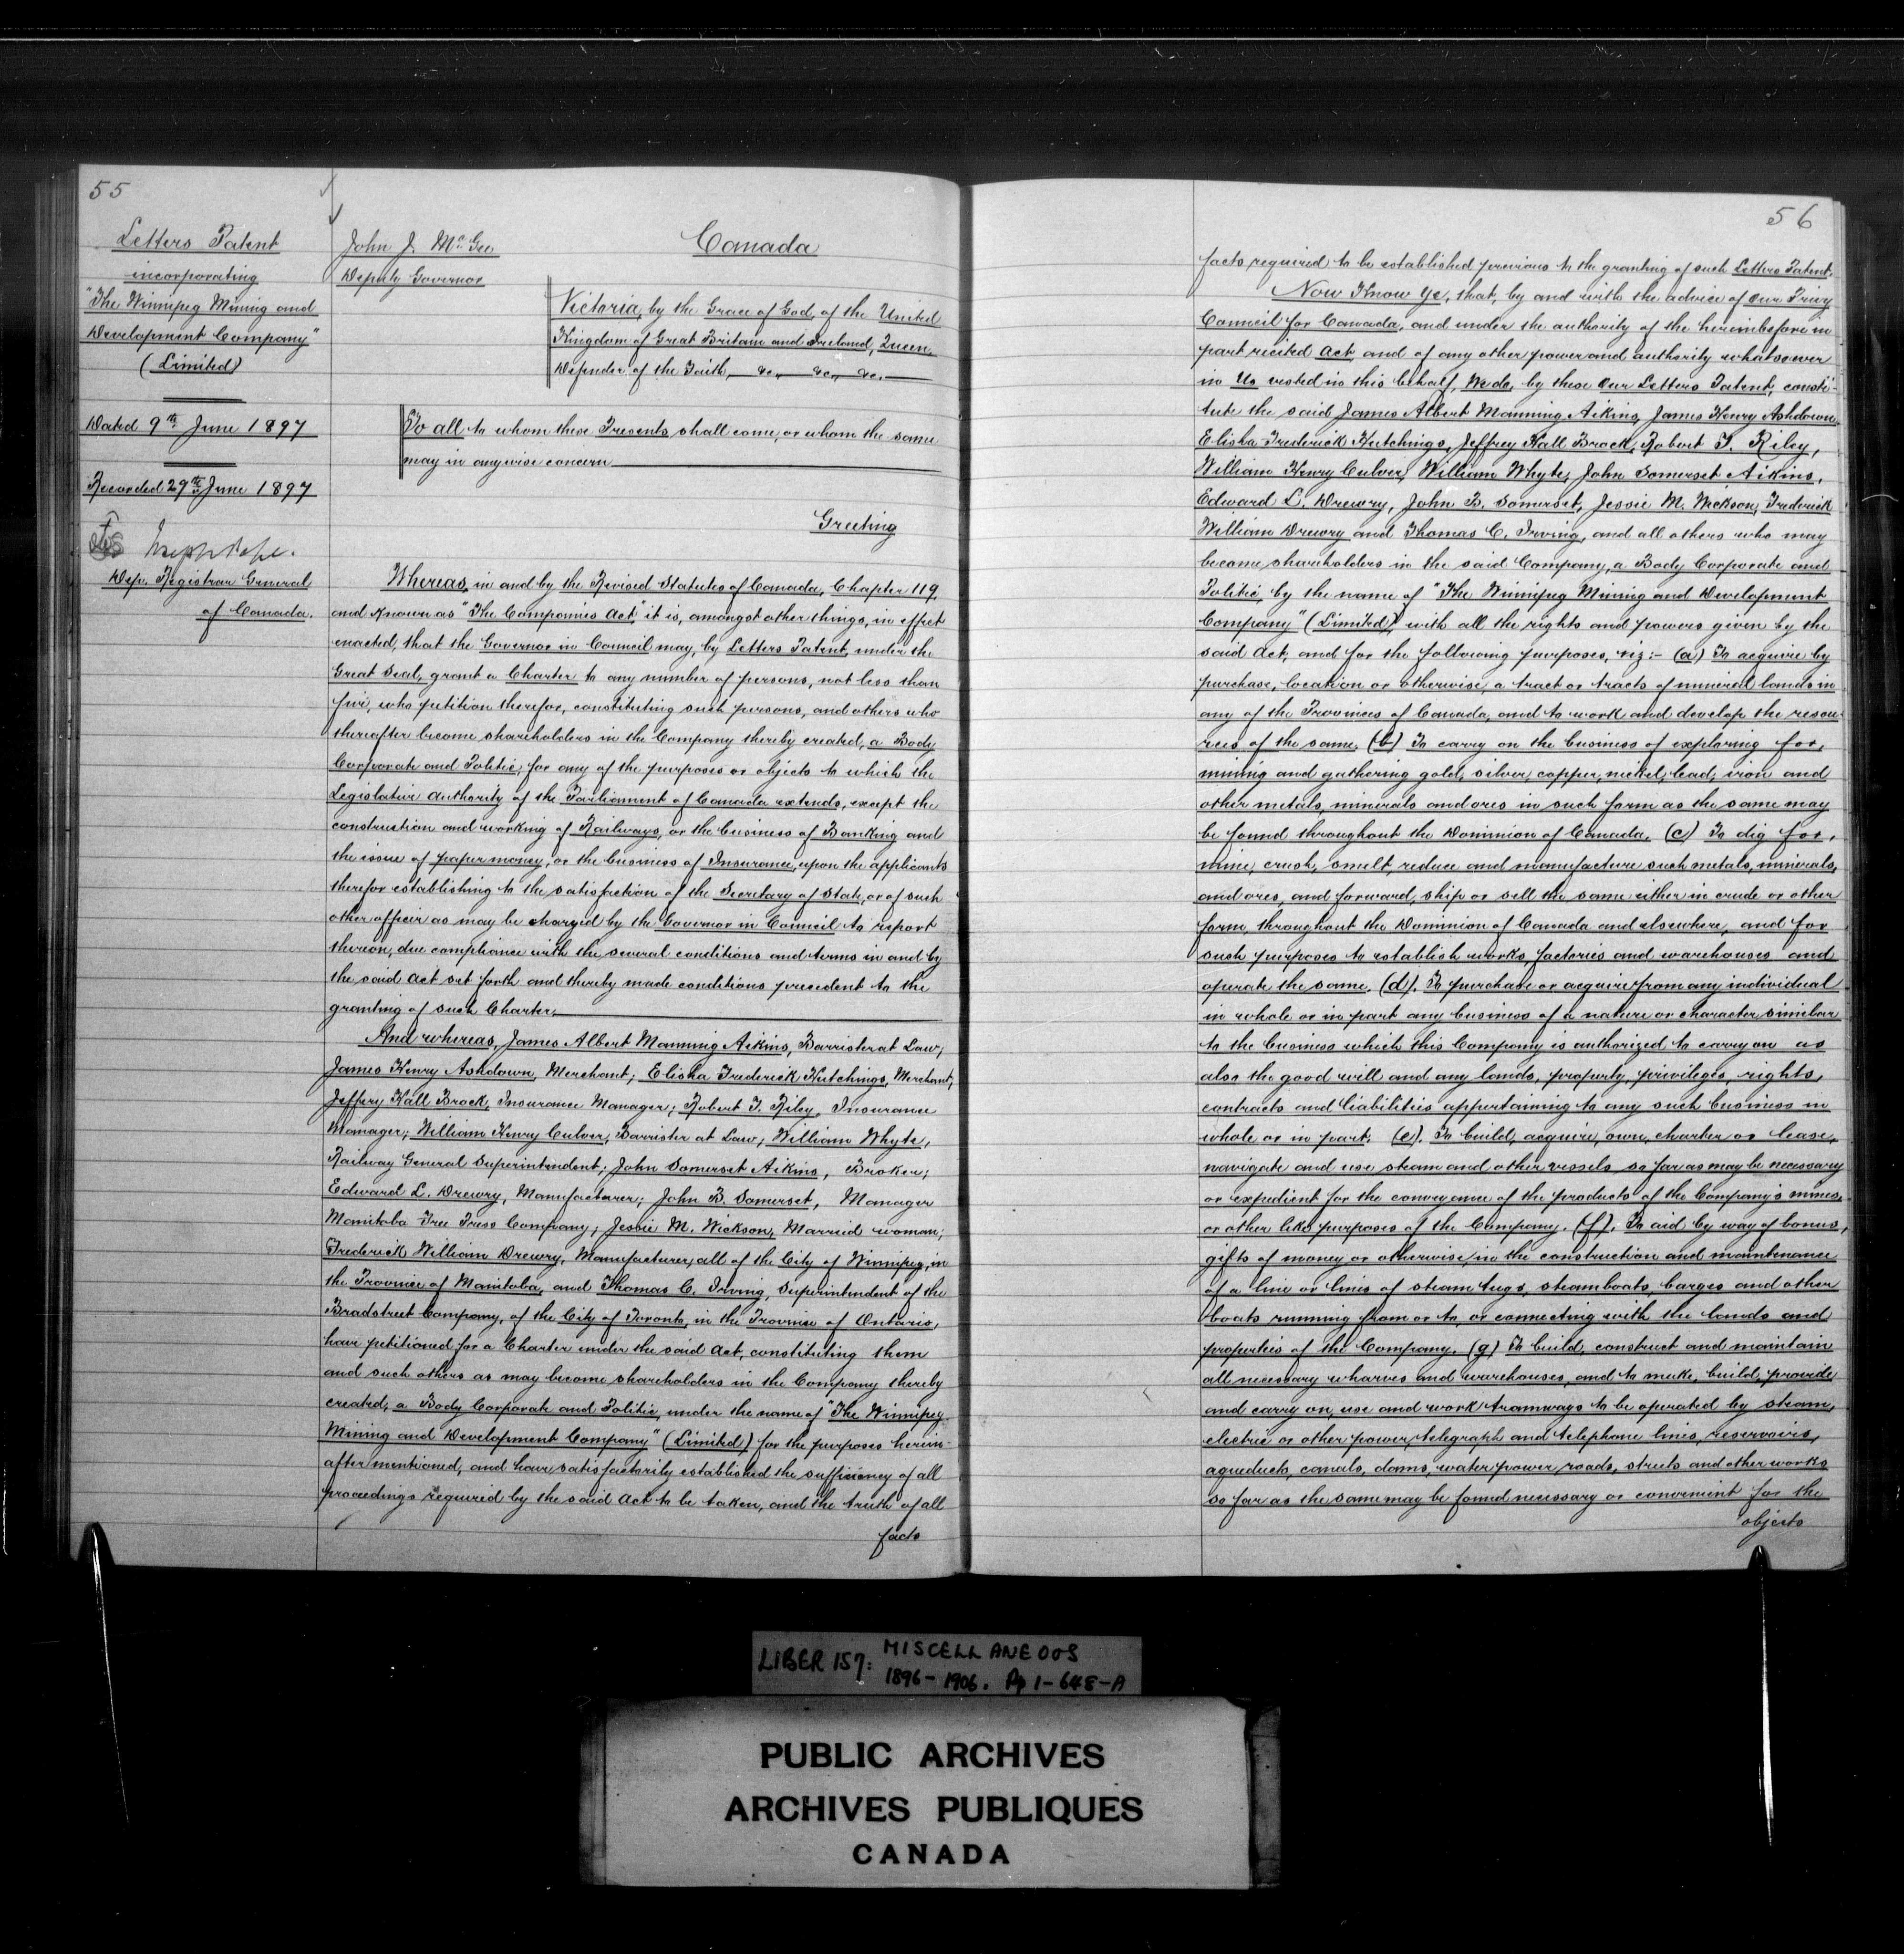 55
Letters Patent
incorporating
"The Winnipeg Mining and
Development Company"
(Limited)
Dated 9th June 1897
Recorded 29th June 1897
Joseph Pope.
Dep. Registrar General
of Canada.
John J. McGee
Deputy Governor
Canada
Victoria, by the Grace of God, of the United
Kingdom of Great Britain and Ireland, Queen,
Defender of the Faith, &c., &c., &c.
To all to whom these Presents shall come, or whom the same
may in anywise concern
Greeting
Whereas, in and by the Revised Statutes of Canada, Chapter 119,
and known as "The Companies Act" it is, amongst other things, in effect
enacted, that the Governor in Council may, by Letters Patent, under the
Great Seal, grant a Charter to any number of persons, not less than
five, who petition therefor, constituting such persons, and others who
thereafter become shareholders in the Company thereby created, a Body
Corporate and Politic, for any of the purposes or objects to which the
Legislative authority of the Parliament of Canada extends, except the
construction and working of Railways, or the business of Banking and
the issue of paper money, or the business of Insurance, upon the applicants
therefor establishing to the satisfaction of the Secretary of State, or of such
other officer as may be charged by the Governor in Council to report
thereon, due compliance with the several conditions and terms in and by
the said Act set forth and thereby made conditions precedent to the
granting of such Charter.
And whereas, James Albert Manning Aikins, Barrister at Law,
James Henry Ashdown, Merchant; Elisha Frederick Hutchings, Merchant;
Jeffery Hall Brock, Insurance Manager; Robert T. Riley, Insurance
Manager; William Henry Culver, Barrister at Law; William Whyte,
Railway General Superintendent; John Somerset Aikins, Broker;
Edward L. Drewry, Manufacturer; John B. Somerset, Manager
Manitoba Free Press Company; Jessie M. Wickson, Married woman;
Frederick William Drewry, Manufacturer, all of the City of Winnipeg, in
the Province of Manitoba, and Thomas C. Irving, Superintendent of the
Bradstreet Company, of the City of Toronto, in the Province of Ontario,
have petitioned for a Charter under the said Act, constituting them
and such others as may become shareholders in the Company thereby
created, a Body Corporate and Politic, under the name of "The Winnipeg
Mining and Development Company" (Limited) for the purposes herein-
after mentioned, and have satisfactorily established the sufficiency of all
proceedings required by the said Act to be taken, and the truth of all
facts
56
facts required to be established previous to the granting of such Letters Patent,
Now Know Ye, that, by and with the advice of Our Privy
Council for Canada, and under the authority of the hereinbefore in
part recited Act, and of any other power and authority whatsoever
in Us vested in this behalf, We do, by these Our Letters Patent, consti-
tute the said James Albert Manning Aikins, James Henry Ashdown,
Elisha Frederick Hutchings, Jeffrey Hall Brock, Robert T. Riley,
William Henry Culver, William Whyte, John Somerset Aikins,
Edward L. Drewry, John B. Somerset, Jessie M. Wickson, Frederick
William Drewry and Thomas C. Irving, and all others who may
become shareholders in the said Company, a Body Corporate and
Politic, by the name of "The Winnipeg Mining and Development
Company" (Limited) with all the rights and powers given by the
said Act, and for the following purposes, viz:- (a) To acquire by
purchase, location or otherwise a tract or tracts of mineral lands in
any of the Provinces of Canada, and to work and develop the resou-
rces of the same. (b) To carry on the business of exploring for,
mining and gathering gold, silver, copper, nickel, lead, iron and
other metals, minerals and ores in such form as the same may
be found throughout the Dominion of Canada. (c) To dig for,
mine, crush, smelt, reduce and manufacture such metals, minerals,
and ores, and forward, ship or sell the same either in crude or other
form, throughout the Dominion of Canada and elsewhere, and for
such purposes to establish works, factories and warehouses and
operate the same. (d). To purchase or acquire from any individual
in whole or in part any business of a nature or character similar
to the business which this Company is authorized to carry on as
also the good will and any lands, property, privileges, rights,
contracts and liabilities appertaining to any such business in
whole or in part. (e). To build, acquire own, charter or lease,
navigate and use steam and other vessels so far as may be necessary
or expedient for the conveyance of the products of the Company's mines,
or other like purposes of the Company. (f). To aid by way of bonus,
gifts of money or otherwise, in the construction and maintenance
of a line or lines of steam tugs, steamboats, barges and other
boats running from or to, or connecting with the lands and
properties of the Company. (g) To build, construct and maintain
all necessary wharves and warehouses, and to make, build, provide
and carry on, use and work tramways to be operated by steam,
electric or other power, telegraph and telephone lines, reservoirs,
aqueducts, canals, dams, water power, roads, streets and other works
so far as the same may be found necessary or convenient for the
objects
LIBER 157: MISCELLANEOUS
1896-1906. Pp 1-648-A
PUBLIC ARCHIVES
ARCHIVES PUBLIQUES
CANADA